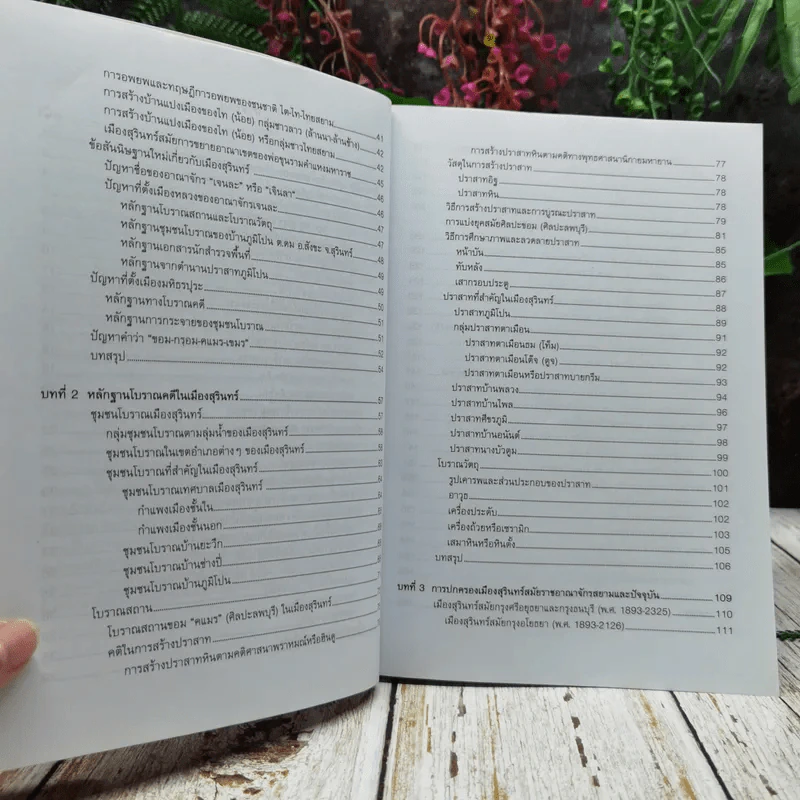 การอพยพและทฤษฎีการอพยพของชนชาติ ไต-ไท-ไทยสยาม
การสร้างบ้านแปงเมืองของไท (น้อย) กลุ่มชาวลาว (ล้านนา-ล้านช้าง) 41
การสร้างบ้านแปงเมืองของไท (น้อย) หรือกลุ่มชาวไทยสยาม 42
เมืองสุรินทร์สมัยการขยายอาณาเขตของพ่อขุนรามคำแหงมหาราช 42
ข้อสันนิษฐานใหม่เกี่ยวกับเมืองสุรินทร์ 45
ปัญหาชื่อของอาณาจักร "เจนละ" หรือ "เจินลา" 46
ปัญหาที่ตั้งเมืองหลวงของอาณาจักรเจนละ 46
หลักฐานโบราณสถานและโบราณวัตถุ 47
หลักฐานชุมชนโบราณของบ้านภูมิโปน ต.ดม อ.สังขะ จ.สุรินทร์ 47
หลักฐานเอกสารนักสำรวจพื้นที่ 48
หลักฐานจากตำนานปราสาทภูมิโปน 49
ปัญหาที่ตั้งเมืองมหิธรปุระ 49
หลักฐานทางโบราณคดี 50
หลักฐานการกระจายของชุมชนโบราณ 51
ปัญหาคำว่า "ขอม-กรอม-คแมร-เขมร" 52
บทสรุป 54
บทที่ 2 หลักฐานโบราณคดีในเมืองสุรินทร์ 57
ชุมชนโบราณเมืองสุรินทร์ 57
กลุ่มชุมชนโบราณตามลุ่มน้ำของเมืองสุรินทร์
ชุมชนโบราณในเขตอำเภอต่างๆ ของเมืองสุรินทร์
ชุมชนโบราณที่สำคัญในเมืองสุรินทร์
ชุมชนโบราณเทศบาลเมืองสุรินทร์
กำแพงเมืองชั้นใน
กำแพงเมืองชั้นนอก
ชุมชนโบราณบ้านยะวึก
ชุมชนโบราณบ้านช่างปี่
ชุมชนโบราณบ้านภูมิโปน
โบราณสถาน
โบราณสถานขอม "คแมร" (ศิลปะลพบุรี) ในเมืองสุรินทร์
คติในการสร้างปราสาท
การสร้างปราสาทหินตามคติศาสนาพราหมณ์หรือฮินดู
การสร้างปราสาทหินตามคติทางพุทธศาสนานิกายมหายาน 77
วัสดุในการสร้างปราสาท 78
ปราสาทอิฐ 78
ปราสาทหิน 78
วิธีการสร้างปราสาทและการบูรณะปราสาท 79
การแบ่งยุคสมัยศิลปะขอม (ศิลปะลพบุรี) 81
วิธีการศึกษาภาพและลวดลายปราสาท 85
หน้าบัน 85
ทับหลัง 86
เสากรอบประตู 87
ปราสาทที่สำคัญในเมืองสุรินทร์ 88
ปราสาทภูมิโปน 89
กลุ่มปราสาทตาเมือน 91
ปราสาทตาเมือนธม (โท๊ม) 92
ปราสาทตาเมือนโต๊จ (ตูจ) 92
ปราสาทตาเมือนหรือปราสาทบายกรีม 93
ปราสาทบ้านพลวง 94
ปราสาทบ้านไพล 96
ปราสาทศีขรภูมิ 97
ปราสาทบ้านอนันต์ 98
ปราสาทนางบัวตูม 99
โบราณวัตถุ 100
รูปเคารพและส่วนประกอบของปราสาท 101
อาวุธ 102
เครื่องประดับ 102
เครื่องถ้วยหรือเซรามิก 103
เสมาหินหรือหินตั้ง 105
บทสรุป 106
บทที่ 3 การปกครองเมืองสุรินทร์สมัยราชอาณาจักรสยามและปัจจุบัน 109
เมืองสุรินทร์สมัยกรุงศรีอยุธยาและกรุงธนบุรี (พ.ศ. 1893-2325) 110
เมืองสุรินทร์สมัยกรุงอโยธยา (พ.ศ. 1893-2126) 111